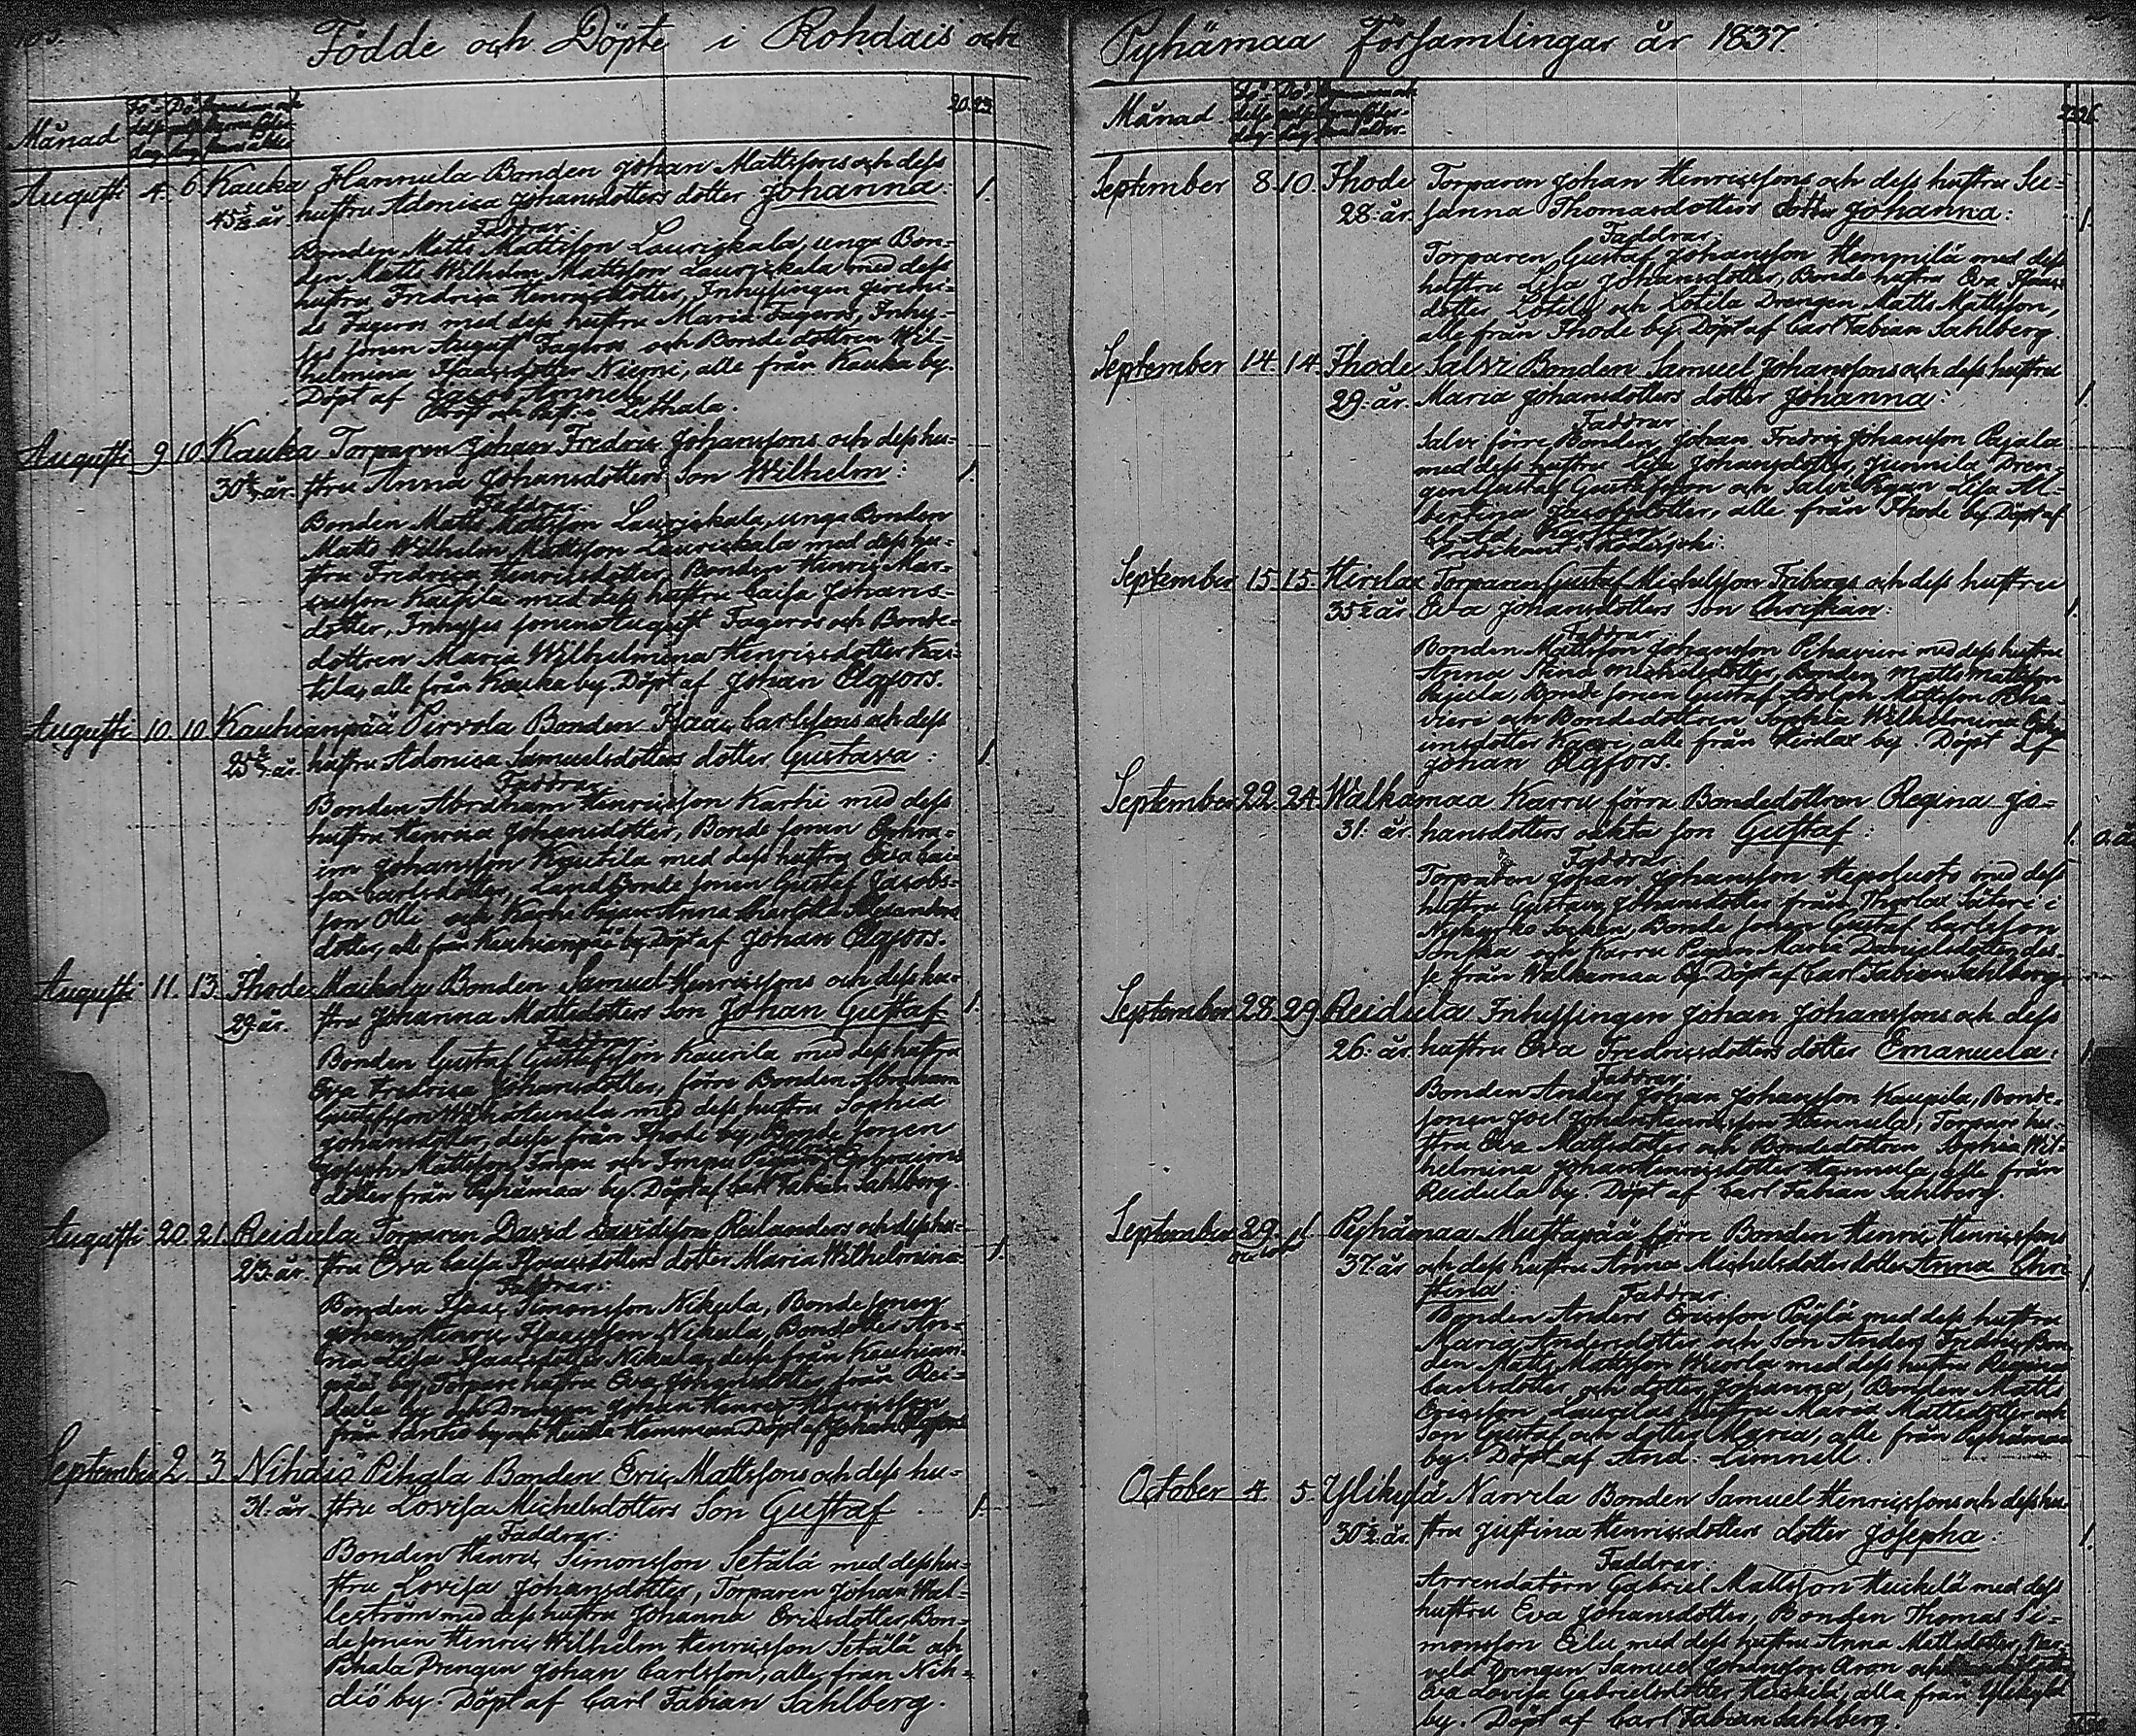 Födde och Döpte i Rohdais och
Månad
20. 23.
Augusti 4. 6. Kauka Hannula Bonden Johan Mattssons och dess
45 år. hustru Adonica Johansdotters dotter Johanna: 1.
Faddrar:
Bonden Matts Mattsson Lauriskala, unga Bon-
den Matts Wilhelm Mattsson Lauriskala med dess
hustru Fredrica Henricsdotter, Inhysingen
Fageros med dess hustru Maria Fageros, Inhy-
ses sonen August Fageros och Bonde dottren Wil-
helmina Isaacsdotter Niemi, alle från Kauka by.
Döpt af Jacob
Lethala.
Augusti 9 10 Kauka Torparen Johan Fredric Johanssons och dess hu-
30 år. stru Anna Johansdotters son Wilhelm: 1.
Faddrar:
Bonden Matts Mattsson Lauriskala, unga Bonden
Matts Wilhelm Mattsson Lauriskala med dess hu-
stru Fredrica Henricsdotter, Bonden Henric Mar-
cusson med dess hustru Caisa Johans-
dotter, Inhyses sonen August Fageros och Bonde-
dottren Maria Wilhelmina Henricsdotter
alle från Kauka by. Döpt af Johan Elgfors.
Augusti 10. 10 Kauhianpää Pirvola Bonden Isaac Carlssons och dess
25 år. hustru Adonica Samuelsdotters dotter Gustava: 1
Faddrar:
Bonden Abraham Henricsson Karhi med dess
hustru Henrica Johansdotter, Bonde sonen Ephra-
im Johansson Kautila med dess hustru Eva Cai-
sa Carlsdotter, Landbonde sonen Gustaf Jacobs-
son Olli och Karhi Pigan Anna Charlotta Alexanders
dotter, alle från Kauhianpää by. Döpt af Johan Elgfors.
Augusti 11. 13. Ihode Maikola Bonden Samuel Henricssons och dess hu-
29. år. stru Johanna Mattsdotters son Johan Gustaf 1.
Faddrar:
Bonden Gustaf Gustafsson Kaurila med dess hustru
Eva Fredrica Johansdotter, förre Bonden Abraham
Gustafsson med dess hustru Sophia
Johansdotter, desse från Ihode by, Bonde sonen
Joseph Mattsson Impu och Impu Pigan Ephraims
dotter från Pyhämaa by. Döpt af Carl Fabian Sahlberg.
Augusti 20. 21. Reidula Torparen David Davidsson Reilanders och dess hu-
23. år. stru Eva Caisa Isaacsdotters dotter Maria Wilhelmina 1.
Faddrar:
Bonden Isaac Simonsson Nikula, Bonde sonen
Johan Henric Isaacsson Nikula, Bondedotter An-
na Lisa Isaacsdotter Nikula, desse från Kauhian-
pää by, Torpare hustru Eva Johansdotter från Rei-
dula by och Drengen Johan Henric Henricsson
från Döpt af Johan Elgfors
September 2 3 Nihdiö Pihala Bonden Eric Mattssons och dess hu-
31. år. stru Lovisa Michelsdotters Son Gustaf 1.
Faddrar:
Bonden Henric Simonsson Setälä med dess hu-
stru Lovisa Johansdotter, Torparen Johan Wal-
leström med dess hustru Johanna Ericsdotter, Bon-
de sonen Henric Wilhelm Henricsson Setälä och
Pihala Drengen Johan Carlsson, alle från Nih-
diö by. Döpt af Carl Fabian Sahlberg.
Pyhämaa församlingar år 1837.
Månad
September 8. 10. Ihode Torparen Johan Henricssons och dess hustru Su-
28. år. sanna Thomasdotters dotter Johanna: 1.
Faddrar:
Torparen Gustaf Johansson Hemmilä med dess
hustru Lisa Johansdotter, Bonde hustru Eva Isaacs
dotter Lotila och Lotila Drengen Matts Mattsson,
alle från Ihode by. Döpt af Carl Fabian Sahlberg.
September 14. 14. Ihode Salvi Bonden Samuel Johanssons och dess hustru
29. år. Maria Johansdotters dotter Johanna: 1.
Faddrar
Salvi förre Bonden Johan Fredric Johansson
med dess hustru Lisa Johansdotter, Junnila Dren-
gen Gustaf Gustafsson och Salvi Pigan Lisa Al-
bertina Jacobsdotter, alle från Ihode by. Döpt af
September 15. 15. Hirslax Torparen Gustaf Michelsson Fribergs och dess hustru
35 år Eva Johansdotters Son Christian: 1.
Faddrar
Bonden Mattsson Johansson Pihavieri med dess hustru
Anna Stina Michelsdotter, Bonden Matts Mattsson
Bonde sonen Gustaf Mattsson Piha-
vieri och Bondedottren Sophia Wilhelmina
alle från Hirslax by. Döpt af
Johan Elgfors.
September 22. 24. Walkamaa Karru förra Bondedottren Regina Jo-
31. år hansdotters oäkta son Gustaf: 1.
Faddrar
Torparen Johan Johansson med dess
hustru Gustava Johansdotter från Säteri i
Nykyrko Socken, Bonde sonen Gustaf Carlsson
och Karru Pigan Maria Danielsdotter des-
se från Walkamaa by. Döpt af Carl Fabian Sahlberg.
September 28. 29. Reidula Inhysingen Johan Johanssons och dess
26. år. hustru Eva Fredricsdotters dotter Emanuela: 1
Faddrar:
Bonden Anders Johan Johansson Kaupila, Bonde-
sonen Joel Johan Henricsson Hannula, Torpare hu-
stru Eva Mattsdotter och Bondedottren Sophia Wil-
helmina Johan Henricsdotter Hannula, alle från
Reidula by. Döpt af Carl Fabian Sahlberg.
September 29. 1 Pyhämaa Mustapää förre Bonden Henric Henricssons
October 37. år och dess hustru Anna Michelsdotters dotter Anna Chri- 1.
stina: Faddrar:
Bonden Anders Ericsson med dess hustru
Maria Andersdotter och Son Anders Fredric, Bon-
den Matts Mattsson med dess hustru Regina
Carlsdotter och dotter Johanna, Bonden Matts
Ericsson Laurilas hustru Maria Mattsdotter och
Son Gustaf och dotter Maria, alle från Pyhämaa
by. Döpt af And. Limnell.
October 4. 5. Ylikylä Narvela Bonden Samuel Henricssons och dess hu-
30 år. stru Justina Henricsdotters dotter Josepha: 1.
Faddrar:
Arrendatorn Gabriel Mattsson Heickelä med dess
hustru Eva Johansdotter, Bonden Thomas Si-
monsson Eelu med dess hustru Anna Mattsdotter, Nar-
vela Drengen Samuel Johansson Aron och
Eva Lovisa Gabrielsdotter Heickelä, alla från Ylikylä
by. Döpt af Carl Fabian Sahlberg.